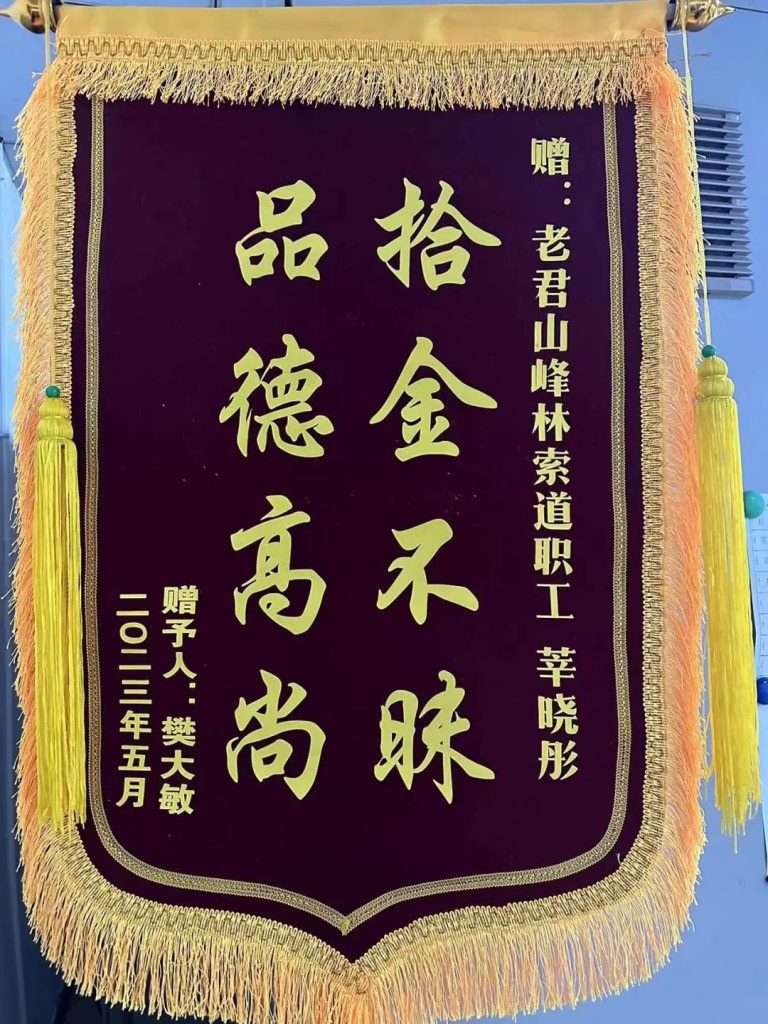 赠：老君山峰林索道职工 莘晓彤
拾金不昧
品德高尚
赠予人：樊大敏
二〇二三年五月